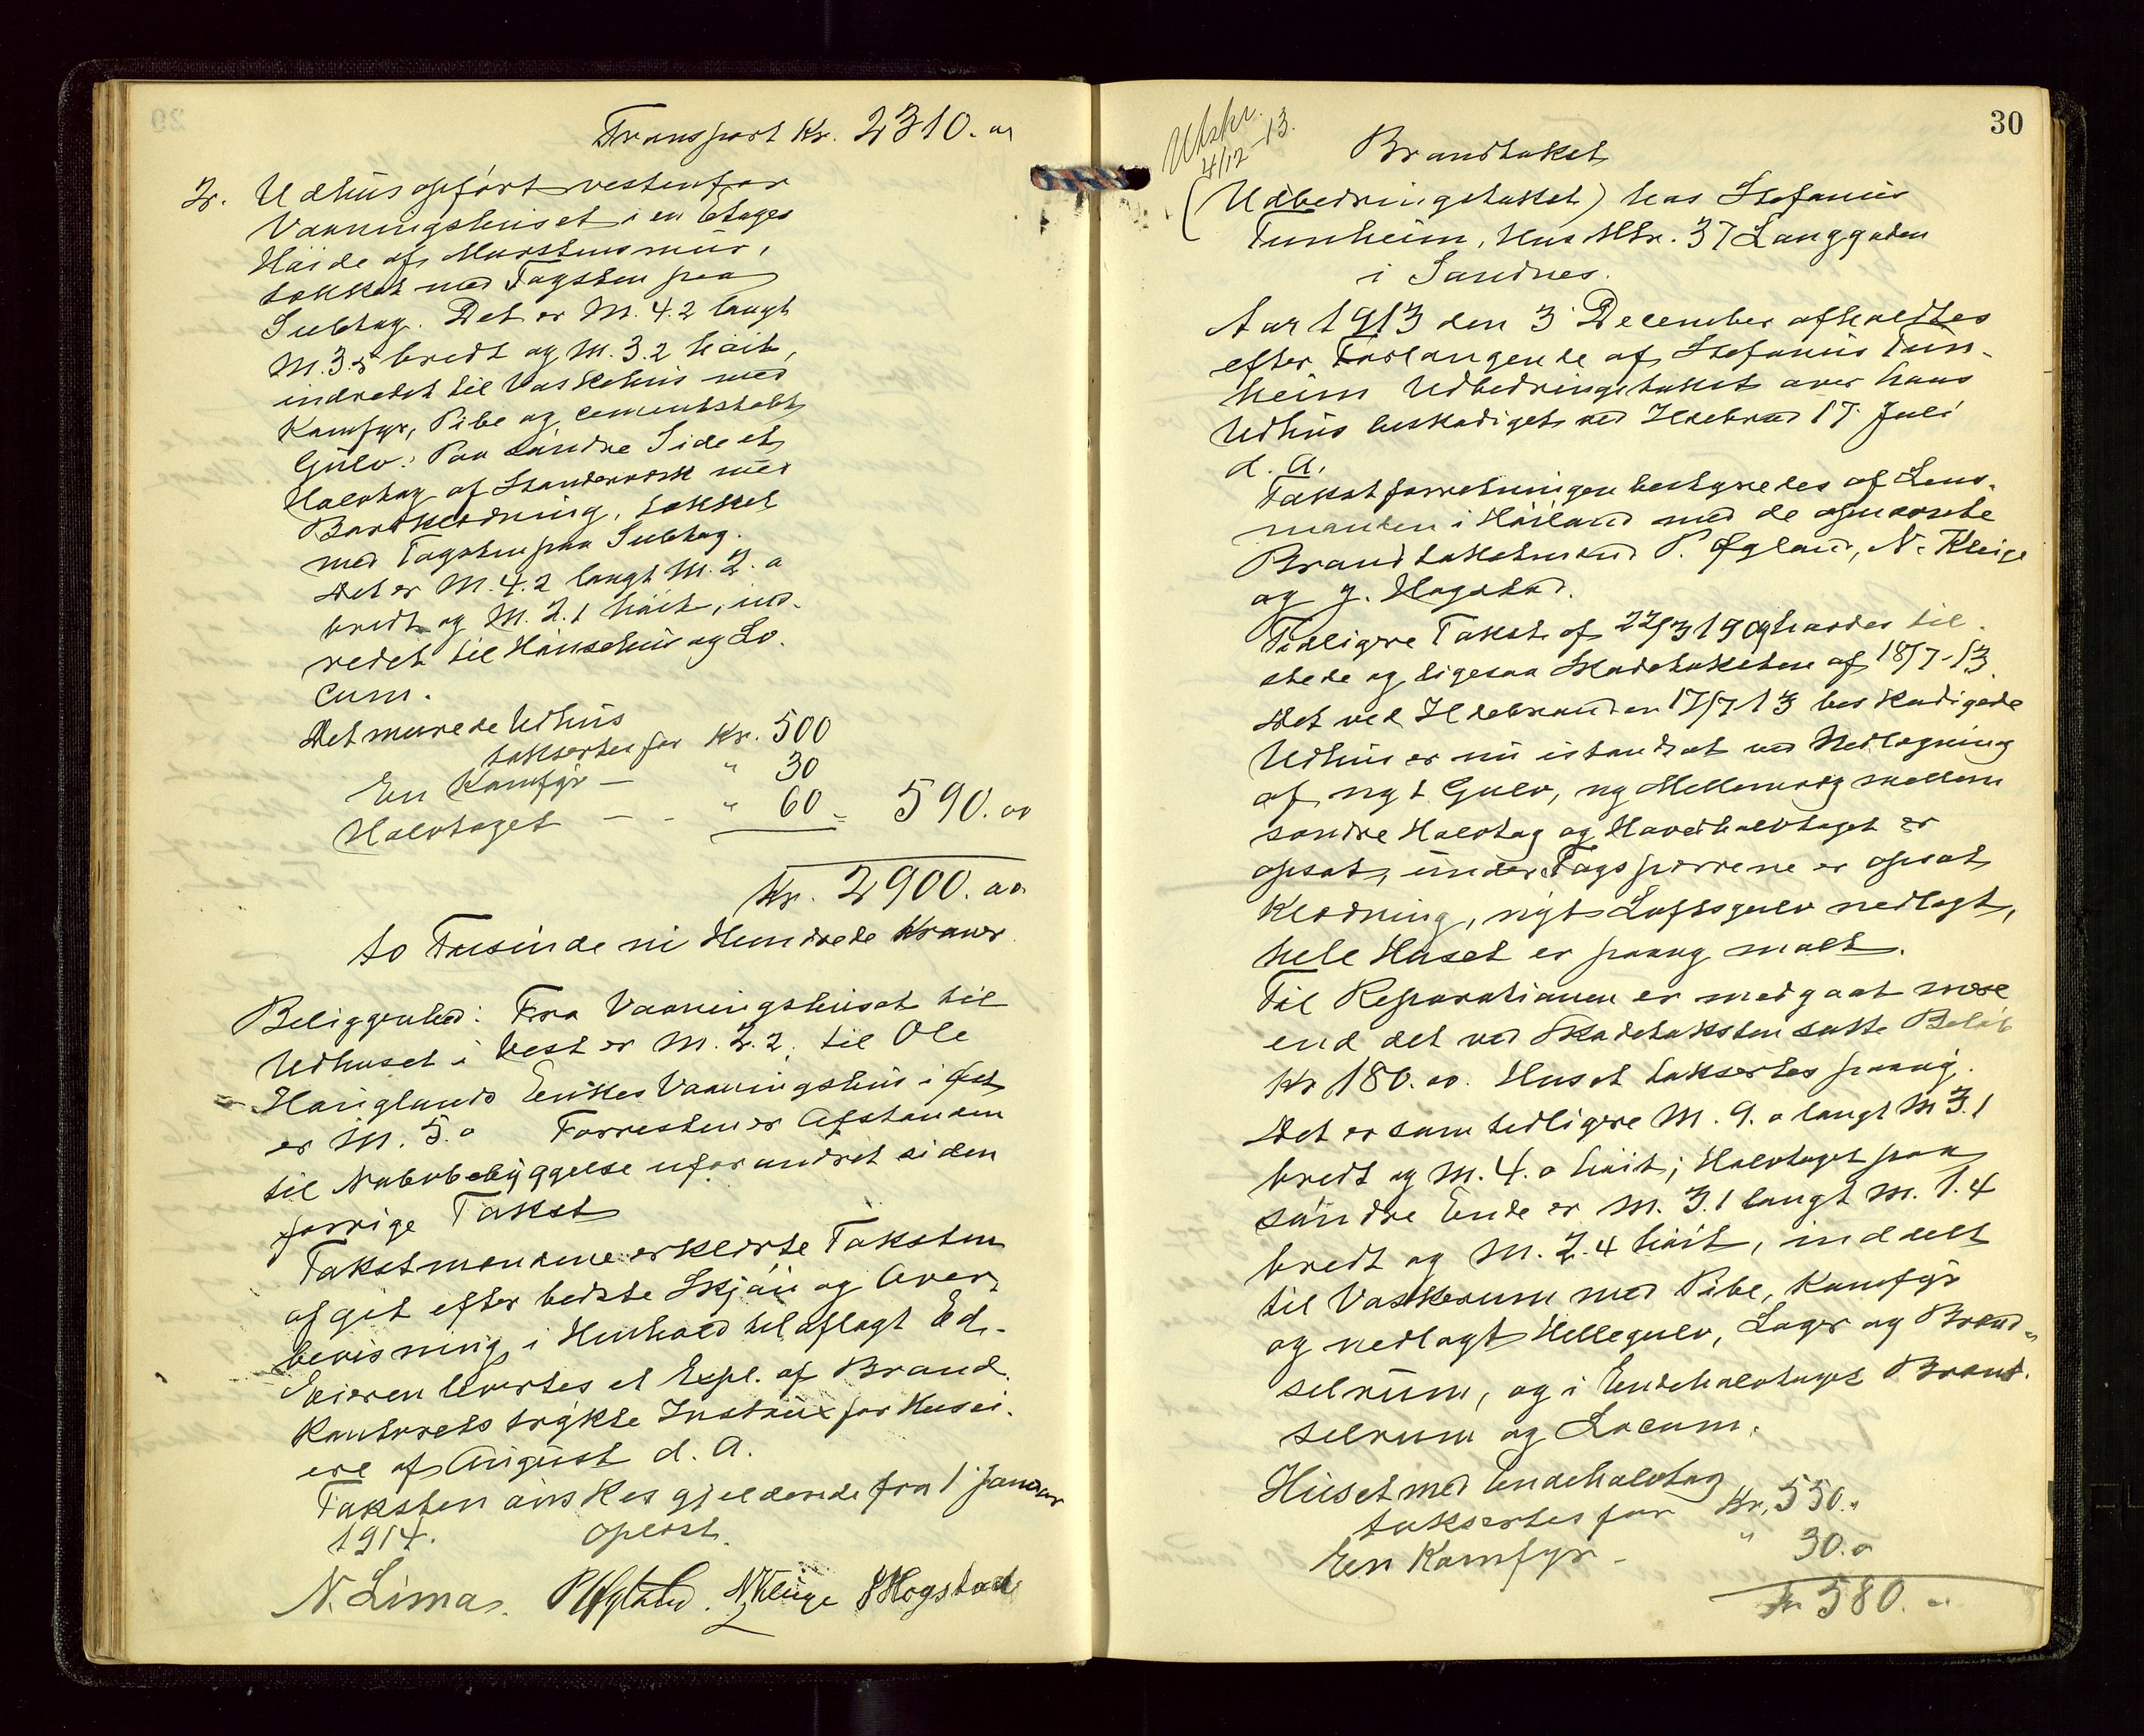 Transport Kr. 2310.00
2. Udhus opført vestenfor
Vaaningshuset i en Etages
Høide af Murstensmur,
tækket med Tagsten paa
Subtag. Det er M. 4.2 langt
M. 3.5 bredt og M. 3.2 høit,
indredet til Vaskehus med
Komfyr, Pibe og cementstøbt
Gulv. Paa søndre Side et
Halvtag af Standerværk med
Bordklædning, tækket
med Tagsten paa Subtag.
Det er M. 4.2 langt M. 2.0
bredt og M. 2.1 høit, ind-
redet til Hønsehus og Lo-
cum.
Det murede Udhus
taksertes for Kr. 500
En Komfyr — " 30
Halvtaget — - " 60 = 590.00
Kr. 2900.00
to Tusinde ni Hundrede Kroner
Beliggenhed: Fra Vaaningshuset til
Udhuset i Vest er M. 2.2, til Ole
Høiglands Enkes Vaaningshus i Øst
er M. 5.0 Forresten er Afstanden
til Nabobebyggelse uforandret siden
forrige Takst
Takstmændene erklærte Taksten
afgit efter bedste Skjøn og Over-
bevisning i Henhold til aflagt Ed.
Eieren levertes et Expl. af Brand-
kontorets trykte Instrux for Husei-
ere af August d. A.
Taksten ønskes gjeldende fra 1 Januar
1914. Oplæst.
N. Lima. P Øgland. N Kleige J Hogstad
30
Utskr.
4/12-13.
Brandtakst
(Udbedringstakst) hos Stefanus
Tunheim, Hus Mtr. 37 Langgaden
i Sandnes.
Aar 1913 den 3 December afholdtes
efter Forlangende af Stefanus Tun-
heim Udbedringstakst over hans
Udhus beskadiget ved Ildebrand 17 Juli
d. A.
Takstforretningen bestyredes af Lens-
manden i Høiland med de opnævnte
Brandtakstmænd P. Øgland, N. Kleige
og J. Hogstad.
Tidligere Takst af 22/3 1909 havdes til
stede og ligesaa Skadetaksten af 18/7-13.
Det ved Ildebranden 17/7 13 beskadigede
Udhus er nu istandsat ved Nedlægning
af nyt Gulv, ny Mellemvæg mellem
søndre Halvtag og Hovedhalvtaget er
opsat, under Tagsperrene er opsat
Klædning, nyt Loftsgulv nedlagt,
hele Huset er paany malt.
Til Reparationen er medgaat mere
end det ved Skadetaksten satte Beløb
Kr 180.00. Huset taksertes paany.
Det er som tidligere M. 9.0 langt M 3.1
bredt og M. 4.0 høit; Halvtaget paa
søndre Ende er M. 3.1 langt M. 1.4
bredt og M. 2.4 høit, inddelt
til Vaskerum med Pibe, Komfyr
og nedlagt Hellegulv, Lager og Brænd-
selrum, og i Endehalvtaget Brænd-
selrum og Locum.
Huset med Endehalvtag
taksertes for Kr. 550.0
En Komfyr - " 30.0
Kr 580.00